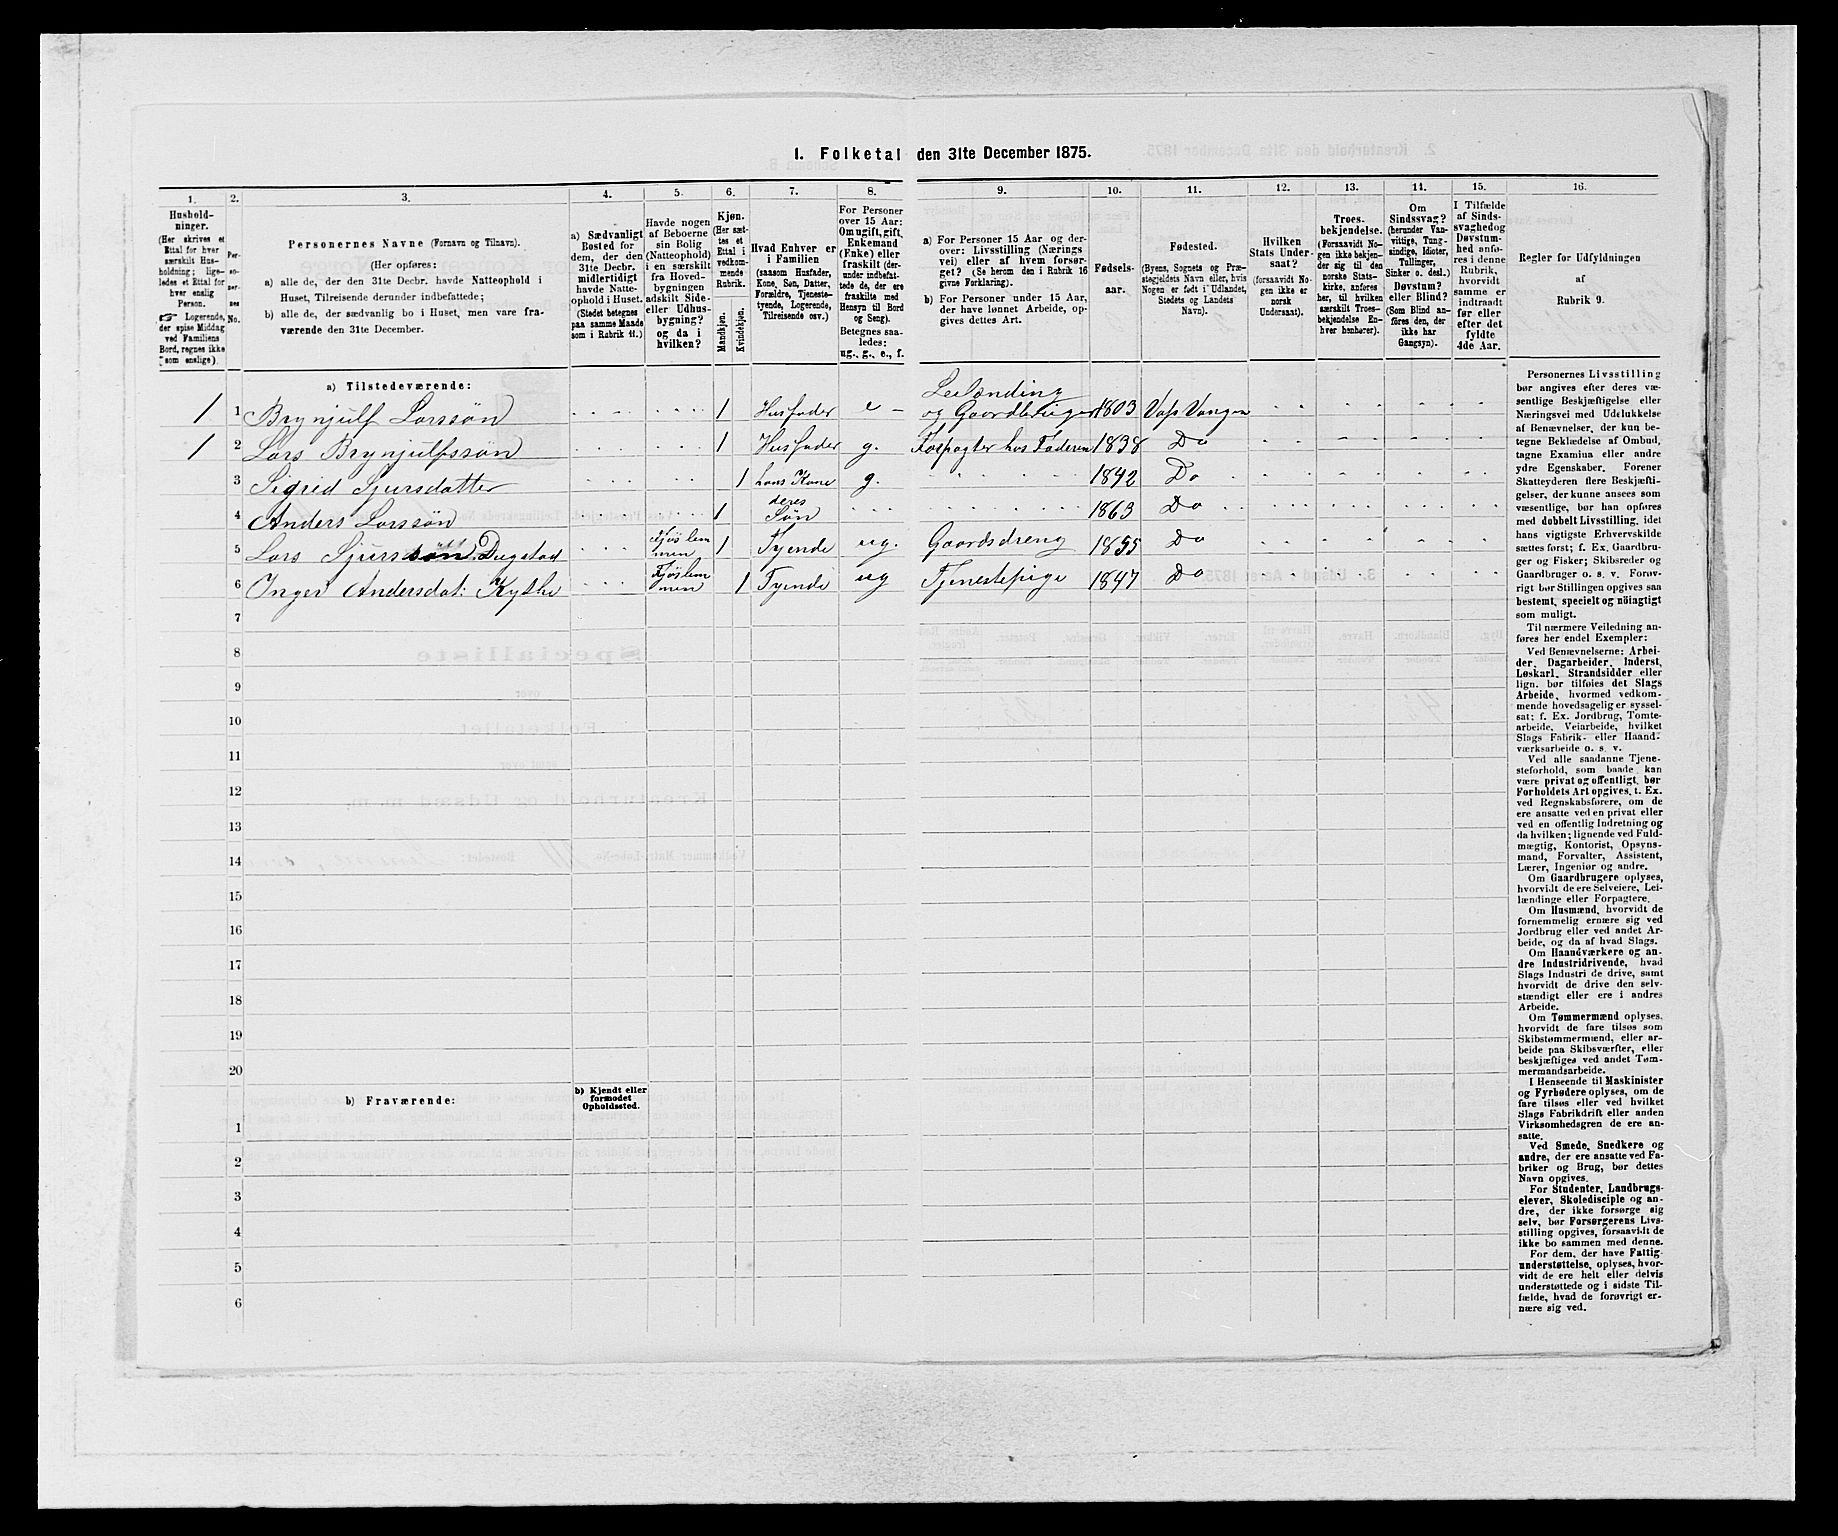 1. Folketal den 31te December 1875.
1.
2.
3.
4.
5.
6.
7.
8.
9.
10.
11.
12.
13.
14.
15.
16.
Hushold-
ninger.
(Her skrives et
Ettal for hver
særskilt Hus-
holdning; lige-
ledes et Ettal for
hver enslig
Person.
☞ Logerende,
der spise Middag
ved Familiens
Bord, regnes ikke
som enslige).
Per-
so-
ner-
nes
No.
Personernes Navne (Fornavn og Tilnavn).
(Her opføres:
a) alle de, der den 31te Decbr. havde Natteophold i
Huset, Tilreisende derunder indbefattede;
b) alle de, der sædvanlig bo i Huset, men vare fra-
værende den 31te December.
a) Sædvanligt
Bosted for
dem, der den
31te Decbr.
midlertidigt
havde Natte-
ophold i Huset.
(Stedet betegnes
paa samme Maade
som i Rubrik 11.)
Havde nogen
af Beboerne
sin Bolig
(Natteophold)
i en særskilt
fra Hoved-
bygningen
adskilt Side-
eller Udhus-
bygning?
og da i
hvilken?
Kjøn.
(Her sæt-
tes et
Ettal i
vedkom-
mende
Rubrik.
Mandkjøn.
Kvindekjøn.
Hvad Enhver er
i Familien
(saasom Husfader,
Kone, Søn, Datter,
Forældre, Tjeneste-
tyende, Logerende,
Tilreisende osv.)
For Personer
over 15 Aar:
Om ugift, gift,
Enkemand
(Enke) eller
fraskilt (der-
under indbefat-
tede de, der ere
fraskilte med
Hensyn til Bord
og Seng).
Betegnes saa-
ledes:
ug., g., e., f.
a) For Personer 15 Aar og der-
over: Livsstilling (Nærings
vei) eller af hvem forsør-
get? (Se herom den i Rubrik 16
givne Forklaring).
b) For Personer under 15 Aar,
der have lønnet Arbeide, op-
gives dettes Art.
Fødsels-
aar.
Fødested.
(Byens, Sognets og Præ-
stegjeldets Navn eller, hvis
Nogen er født i Udlandet,
Stedets og Landets
Navn).
Hvilken
Stats Under-
saat?
(forsaavidt No-
gen ikke er
norsk
Undersaat).
Troes-
bekjendelse.
(Forsaavidt No-
gen ikke bekjen-
der sig til den
norske Stats-
kirke, anføres
her, til hvilken
særskilt Troes-
bekjendelse En-
hver henhører).
Om
Sindssvag?
(herunder Van-
vittige, Tung-
sindige, Idioter,
Tullinger,
Sinker o. desl.)
Døvstum?
eller Blind?
(Som Blind an-
føres den, der
ikke har
Gangsyn).
I Tilfælde
af Sinds-
svaghed og
Døvstum-
hed anfø-
res i denne
Rubrik,
hvorvidt
samme er
indtraadt
før eller
efter det
fyldte
4de Aar.
Regler for Udfyldningen
af
Rubrik 9.
a) Tilstedeværende:
1 1 Brynjulf Larssøn 1 Husfader e Leilænding
og Gaardbruger 1803 Vass Vangen
1 2 Lars Brynjulfssøn 1 Husfader g. Forpagter hos Faderen 1838 Do
3 Sigrid Sjursdatter 1 hans Kone g. 1842 Do
4 Anders Larssøn 1 deres
Søn 1863 Do
5 Lars Sjurssøn Dugstad 1 Tyende ug. Gaardsdreng 1855 Do
6 Inger Andersdat: Kythe 1 Tyende ug Tjenestepige 1847 Do
7
8
9
10
11
12
13
14
15
16
17
18
19
20
b) Fraværende:
b) Kjendt eller
formodet
Opholdssted.
1
2
3
4
5
6
Personernes Livsstilling
bør angives efter deres væ-
sentlige Beskjæftigelse eller
Næringsvei med Udelukkelse
af Benævnelser, der kun be-
tegne Beklædelse af Ombud,
tagne Examina eller andre
ydre Egenskaber. Forener
Skatteyderen flere Beskjæfti-
gelser, der kunne ansees som
væsentlige, bør han opføres
med dobbelt Livsstilling, idet
hans vigtigste Erhvervskilde
sættes først; f. Ex. Gaardbru-
ger og Fisker; Skibsreder og
Gaardbruger o. s. v. Forøv-
rigt bør Stillingen opgives saa
bestemt, specielt og nøiagtigt
som muligt.
Til nærmere Veiledning an-
føres her endel Exempler:
Ved Benævnelserne: Arbei-
der, Dagarbeider, Inderst,
Løskarl, Strandsidder eller
lign. bør tilføies det Slags
Arbeide, hvormed vedkom-
mende hovedsagelig er syssel-
sat; f. Ex. Jordbrug, Tomte-
arbeide, Veiarbeide, hvilket
Slags Fabrik- eller Haand-
værksarbeide o. s. v.
Ved alle saadanne Tjene-
steforhold, som baade kan
være privat og offentligt, bør
Forholdets Art opgives, t. Ex.
ved Regnskabsførere, om de
ere ansatte ved en privat eller
ved en offentlig Indretning og
da hvilken; lignende ved Fuld-
mægtig, Kontorist, Opsyns-
mand, Forvalter, Assistent,
Lærer, Ingeniør og andre.
Om Gaardbrugere oplyses,
hvorvidt de ere Selveiere, Lei-
lændinge eller Forpagtere.
Om Husmænd, hvorvidt de
fornemmelig ernære sig ved
Jordbrug eller ved andet Ar-
beide, og da af hvad Slags.
Om Haandværkere og an-
dre Industridrivende, hvad
Slags Industri de drive, samt
hvorvidt de drive den selv-
stændigt eller ere i andres
Arbeide.
Om Tømmermænd oplyses,
hvorvidt de fare tilsøs som
Skibstømmermænd, eller ar-
beide paa Skibsværfter, eller
beskjæftiges ved andet Tøm-
mermandsarbeide.
I Henseende til Maskinister
og Fyrbødere oplyses, om de
fare tilsøs eller ved hvilket
Slags Fabrikdrift eller anden
Virksomhedsgren de ere an-
satte.
Ved Smede, Snedkere og
andre, der ere ansatte ved Fa-
briker og Brug, bør dettes
Navn opgives.
For Studenter, Landbrugs-
elever, Skoledisciple og an-
dre, der ikke forsørge sig
selv, bør Forsørgerens Livs-
stilling opgives, forsaavidt de
ikke bo sammen med denne.
For dem, der have Fattig-
understøttelse, oplyses, hvor-
vidt de ere helt eller delvis
understøttede og i sidste Til-
fælde, hvad de forøvrigt er-
nære sig ved.